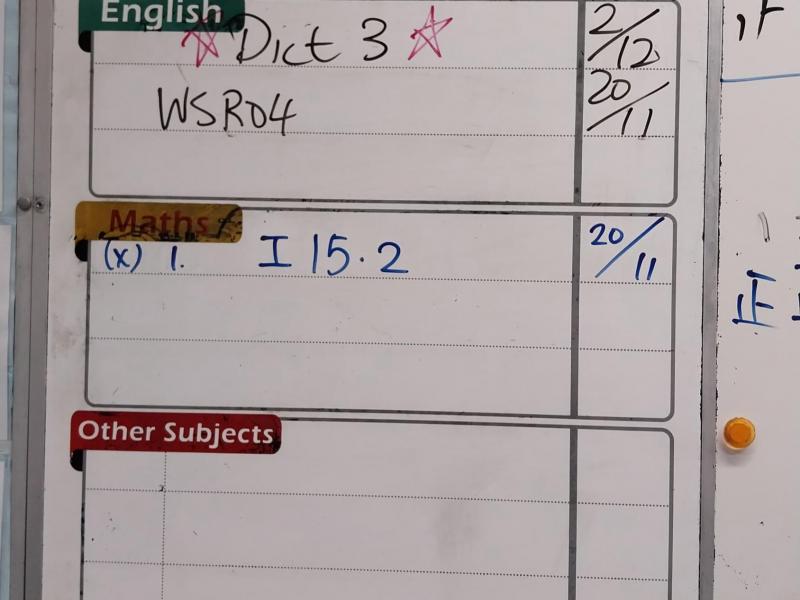 English
☆ Dict 3 ☆ 2/12
WSR04 20/11
Maths
(x) 1. I 15.2 20/11
正
Other Subjects